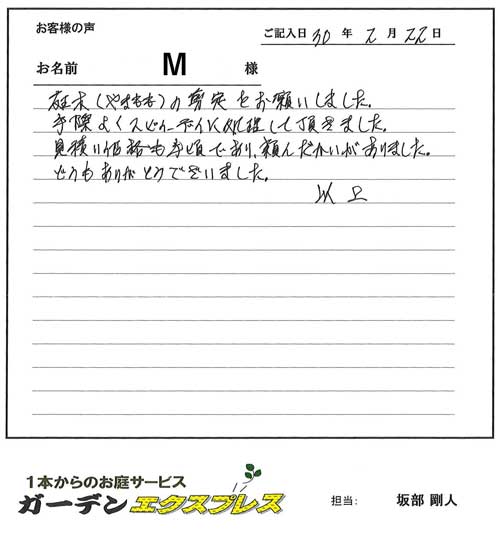 お客様の声
ご記入日 30 年 2 月 22 日
お名前 M 様
庭木(やまもも)の剪定をお願いしました。
手際よくスピーディに処理して頂きました。
見積り価格も手頃であり、頼んだかいがありました。
どうもありがとうございました。
以上
1本からのお庭サービス
ガーデンエクスプレス
担当: 坂部 剛人